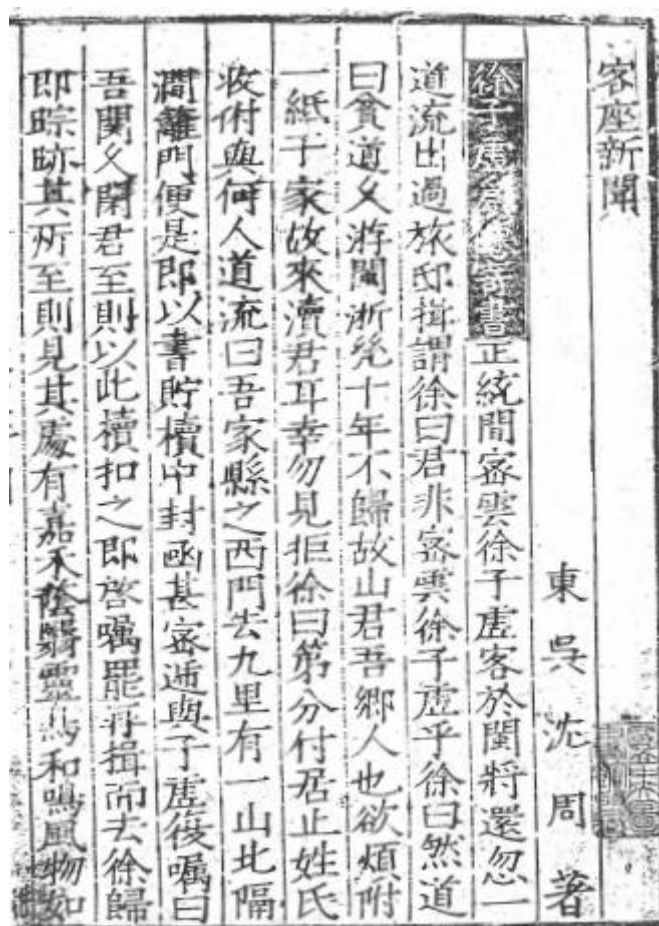 客座新聞
東吳沈周著
徐子虛 書正統間密雲徐子虛客於閩將還忽一
道流出過旅邸揖謂徐曰君非密雲徐子虛乎徐曰然道
曰貧道久游閩浙幾十年不歸故山君吾鄉人也欲煩附
一紙于家故來瀆君耳幸勿見拒徐曰第分付居止姓氏
收付與何人道流曰吾家縣之西門去九里有一山北隔
澗籬門便是即以書貯櫝中封函甚密遞與子虛復嘱曰
吾関久閉君至則以此櫝扣之即啓嘱罷再揖而去徐歸
即踪跡其所至則見其處有嘉木蔭翳靈鳥和鳴風物如